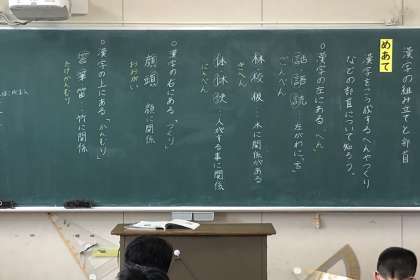 漢字の組み立てと部首
めあて
漢字をこう成するへんやつくり
などの部首について知ろう。
○漢字の左にある、へん
話語読 左がわに「言」
ごんべん
林校板 木に関係がある
きへん
体休 人がする事に関係
にんべん
○漢字の右にある「つくり」
顔頭 頭に関係
おおがい
○漢字の上にある「かんむり」
筆笛 竹に関係
たけかんむり